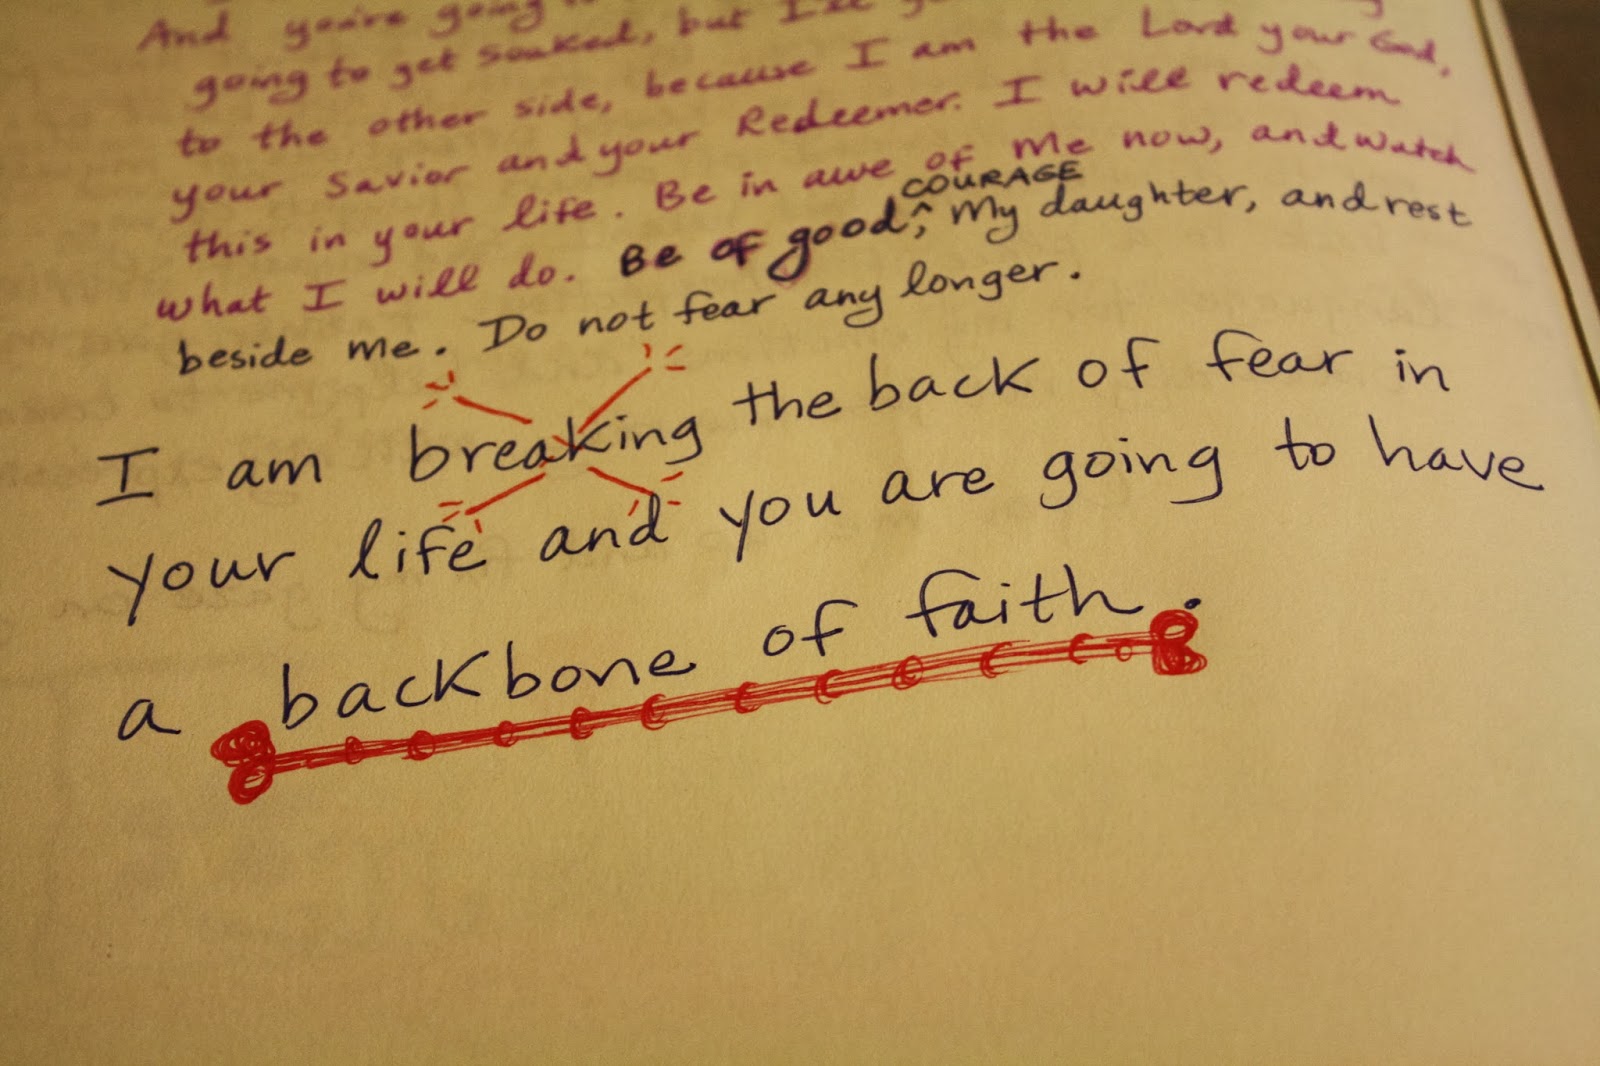 And you're going
going to get soaked, but I'll
to the other side, because I am the Lord your God,
your Savior and your Redeemer. I will redeem
this in your life. Be in awe of Me now, and watch
what I will do. Be of good ^ COURAGE, My daughter, and rest
beside me. Do not fear any longer.
I am breaking the back of fear in
your life and you are going to have
a backbone of faith.